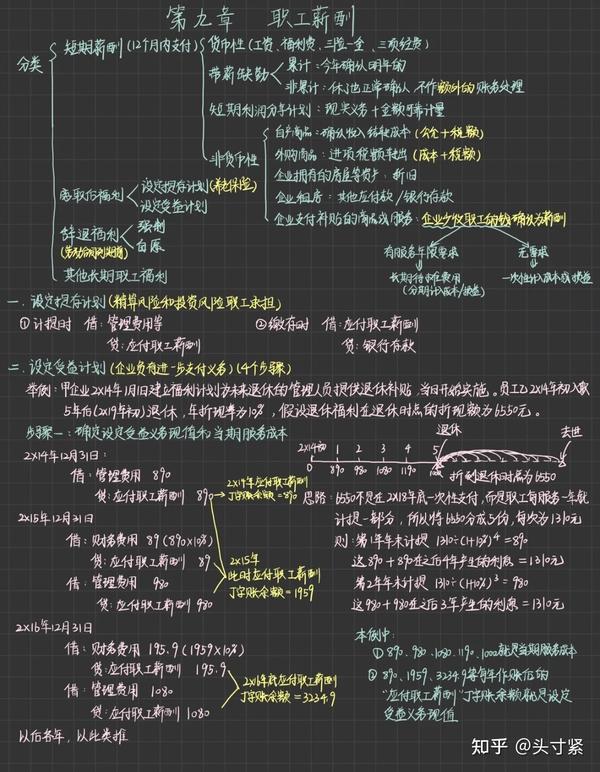 第九章 职工薪酬
分类
短期薪酬(12个月内支付)
货币性(工资、福利费、三险一金、三项经费)
带薪缺勤
累计:今年确认明年的
非累计:休了也正常确认 不作额外的账务处理
短期利润分享计划:现实义务+金额可靠计量
非货币性
自产商品:确认收入结转成本(公允+税额)
外购商品:进项税额转出(成本+税额)
企业拥有的房屋等资产:折旧
企业租房:其他应付款/银行存款
企业支付补贴后的商品或服务:企业少收职工的钱确认为薪酬
有服务年限要求
无要求
长期待摊费用
(分期计入成本/损益)
一次性计入成本或损益
离职后福利
设定提存计划(养老保险)
设定受益计划
辞退福利
强制
自愿
其他长期职工福利
一.设定提存计划(精算风险和投资风险职工承担)
①计提时 借:管理费用等
贷:应付职工薪酬
②缴存时 借:应付职工薪酬
贷:银行存款
二.设定受益计划(企业负有进一步支付义务)(4个步骤)
举例:甲企业2X14年1月1日建立福利计划为未来退休的管理人员提供退休补贴,当日开始实施。员工乙2X14年初入职
5年后(2X19年初)退休,年折现率为10%,假设退休福利在退休时点的折现额为6550元。
步骤一:确定设定受益义务现值和当期服务成本
2X14年12月31日:
借:管理费用 890
贷:应付职工薪酬 890
2X14年应付职工薪酬
丁字账余额=890
2X15年12月31日
借:财务费用 89(890X10%)
贷:应付职工薪酬 89
借:管理费用 980
贷:应付职工薪酬 980
2X15年
此时应付职工薪酬
丁字账余额=1959
2X16年12月31日
借:财务费用 195.9(1959X10%)
贷:应付职工薪酬 195.9
借:管理费用 1080
贷:应付职工薪酬 1080
2X16年底应付职工薪酬
丁字账余额=3234.9
以后各年,以此类推
退休
去世
2X14初 1 2 3 4 5
0 890 980 1080 1190
折到退休时点为6550
思路:6550不是在2X18年底一次性支付,而是职工每服务一年就
计提一部分,所以将6550分成5份,每次为1310元
则:第1年年末计提 1310÷(1+10%)⁴=890
这890+890在之后4年产生的利息=1310元
第2年年末计提 1310÷(1+10%)³=980
这980+980在之后3年产生的利息=1310元
本例中:
①890、980、1080、1190、就是当期服务成本
②890、1959、3234.9等每年作账后的
"应付职工薪酬"丁字账余额就是设定
受益义务现值
知乎 @头寸紧